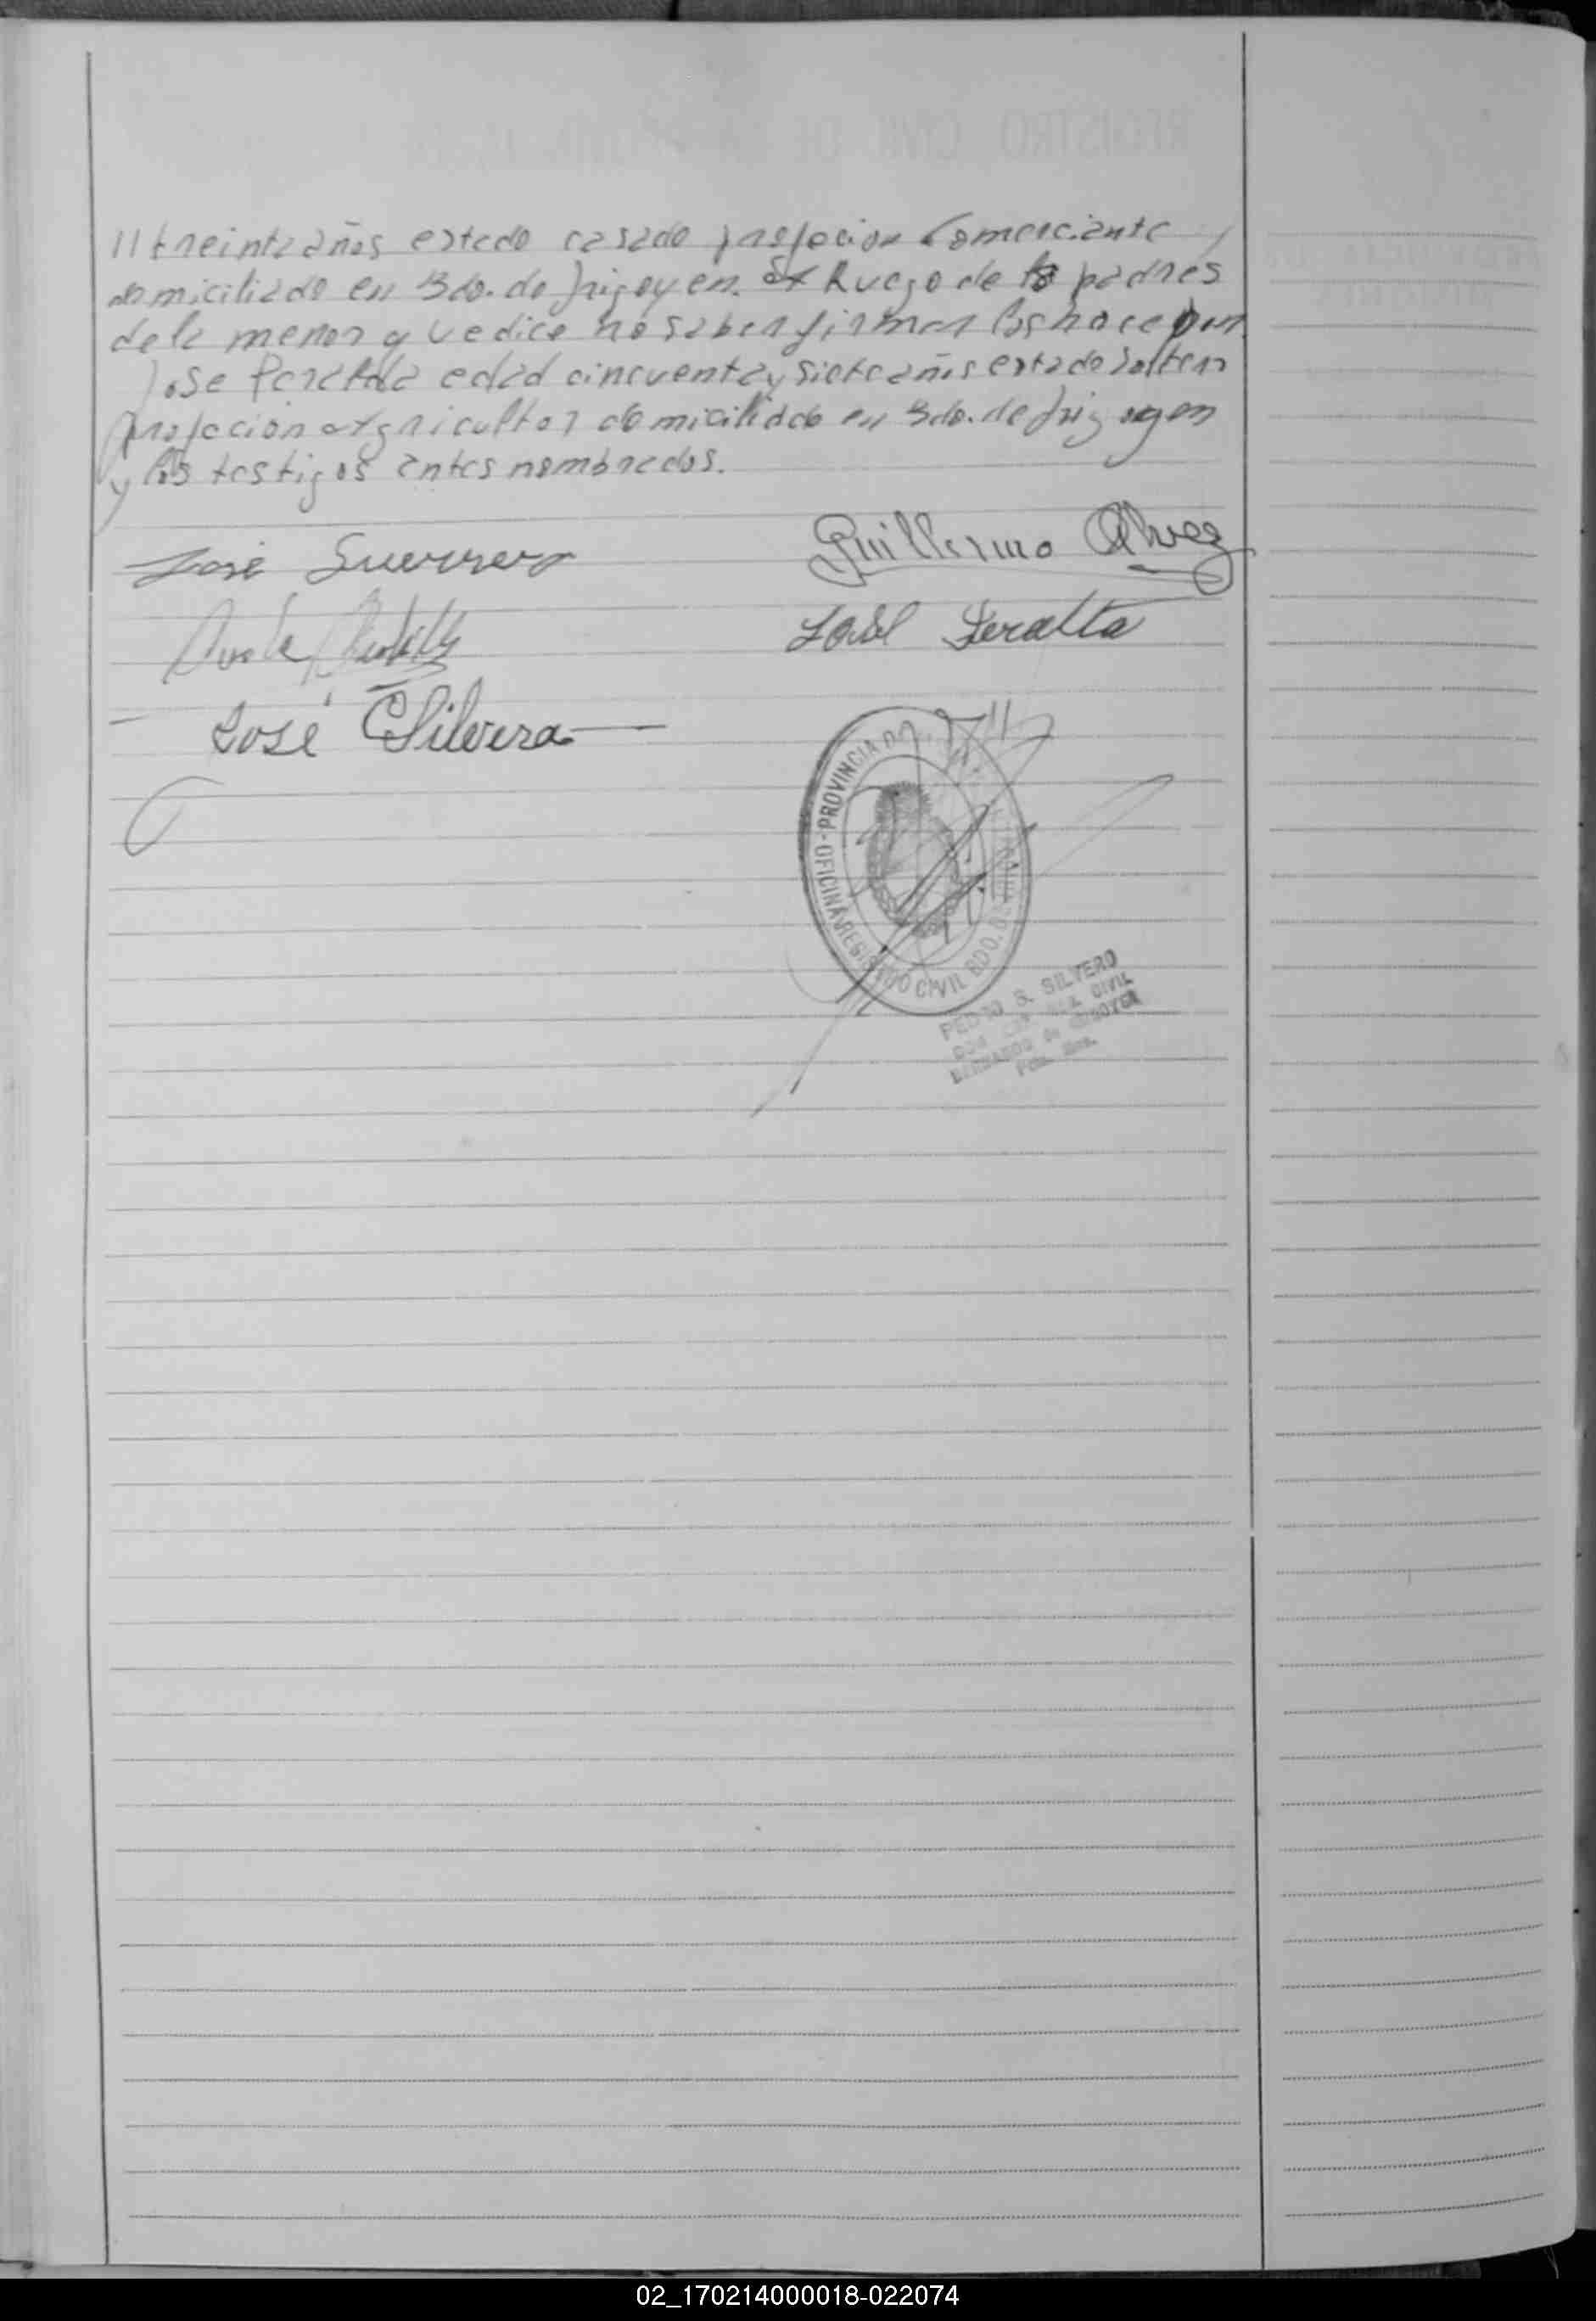 // treinta años estado casado profecion Comerciante
domiciliado en Bdo. de Irigoyen. A Ruego de los padres
dela menor que dice no saben firmar los hace por
Jose Peralta edad cincuenta y siete años estado Soltero
profecion Agricultor domiciliado en Bdo. de Irigoyen
y los testigos antes nombrados.
José Guerrero Guillermo Alvez
José Peralta
José Silveira
PROVINCIA
OFICINA REGISTRO CIVIL BDO. DE
PEDRO S. SILVERO
CIVIL
BERNARDO DE IRIGOYEN
02_170214000018-022074